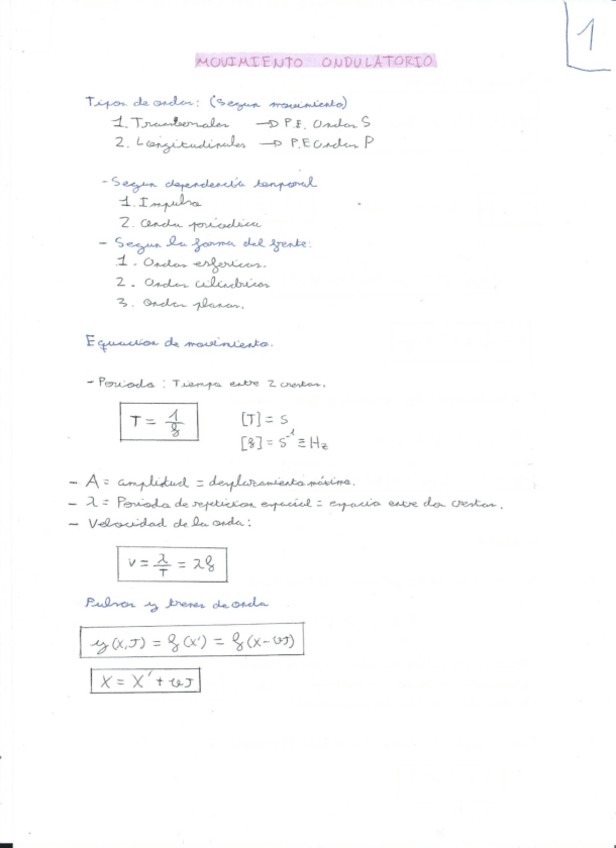 1
MOVIMIENTO ONDULATORIO
Tipos de ondas: (Segun movimiento)
1. Transversales → P.E. Ondas S
2. Longitudinales → P.E Ondas P
- Segun dependencia temporal
1. Impulso
2. Onda periodica
- Segun la forma del frente:
1. Ondas esfericas.
2. Ondas cilindricas
3. Ondas planas.
Equacion de movimiento.
- Periodo : Tiempo entre 2 crestas.
T = 1/f [T] = s
[f] = s⁻¹ ≡ Hz
- A = amplitud = desplazamiento máximo.
- λ = Periodo de repeticion espacial = espacio entre dos crestas.
- Velocidad de la onda:
v = λ/T = λf
Pulsos y trenes de onda
y(x,t) = f(x') = f(x-vt)
x = x' + vt